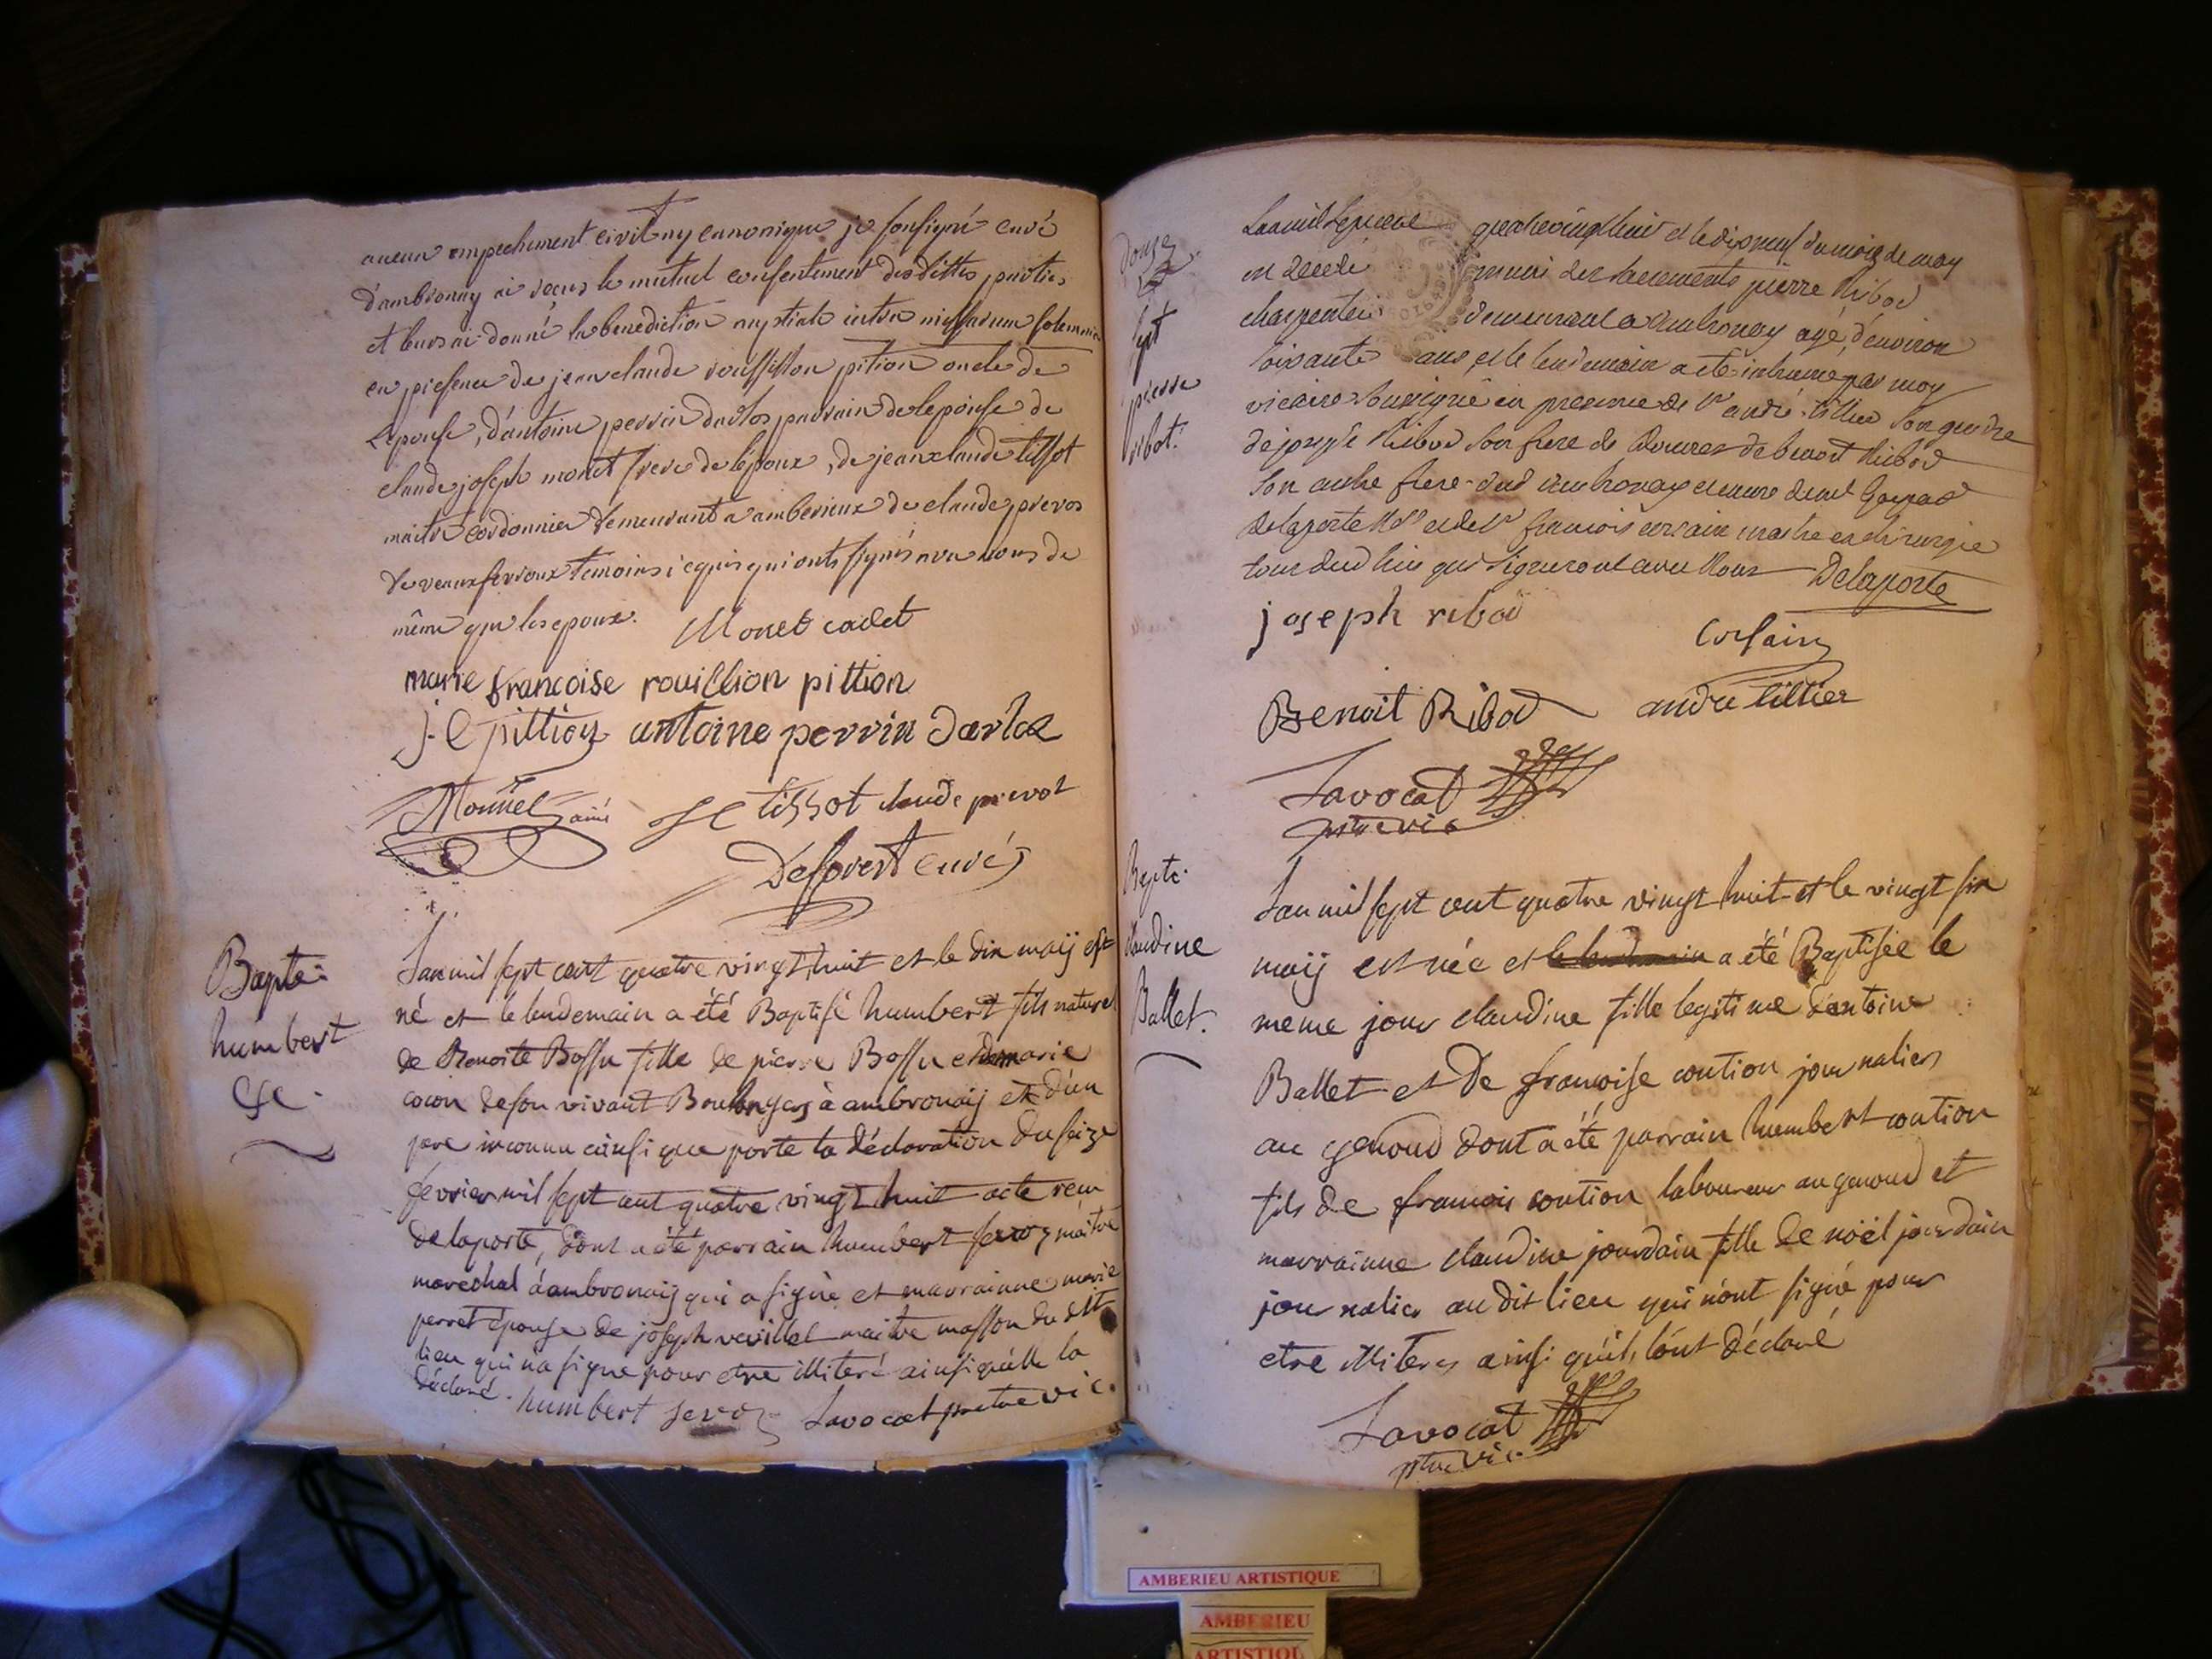 aucun empechement civil ny canonique je sousigné curé
d'ambronay ai recus le mutuel consentement desdittes parties
et leurs ai donné la benediction nuptiale intra missarum solemnia
en presence de jean claude pition oncle de
l'epouse, d'antoine perrin darlos parrain de lepouse de
claude joseph monet frere de l'époux, de jean claude tissot
maitre cordonnier demeurant a amberieux de claude prevos
de temoins requis qui onts signés avec nous de
même que les epoux. Monet cadet
marie francoise rouillion pittion
j. C pittion antoine perrin darloz
Monnet ainé JC tissot claude prevot
Desforest curé
Bapte:
humbert
&c.
Lan mil sept cent quatre vingt huit et le dix maij est
né et le lendemain a été Baptisé humbert fils naturel
de Benoite Bossu fille de pierre Bossu et de marie
cocon de son vivant Boulanger à ambronaij et d'un
pere inconnu ainsi que porte la déclaration du seize
fevrier mil sept cent quatre vingt huit acte recu
delaporte, dont a été parrain humbert maitre
marechal à ambronaij qui a signé et marrainne marie
perret épouse de joseph maitre masson du dit
lieu qui na signe pour etre illiteré ainsi quelle la
déclaré. humbert Lavocat pretre vic.
douze
sept
pierre
ribot.
Lan mil sept cent quatre vingt huit et le dix neuf du mois de may
est decedé muni des sacrements pierre Ribod
charpentier demeurant a Ambronay agé d'environ
soixante ans et le lendemain a eté inhumé par moy
vicaire soussigné en presence de Sr andré tillier son gendre
de joseph Ribod son frere de Douvres de benoit Ribod
son autre frere dud ambronay encore de
delaporte Nre et de Sr francois corsain maitre en chirurgie
tous dud lieu qui signeront avec Nous Delaporte
joseph ribod
Corsain
Benoit Ribod andre tillier
Lavocat
ptre vic
Bapte.
claudine
Ballet.
Lan mil sept cent quatre vingt huit et le vingt six
maij est née et le lendemain a été Baptisée le
meme jour claudine fille legitime d'antoine
Ballet et de francoise coution journaliers
au genoud dont a été parrain humbert coution
fils de francois coution laboureur au genoud et
marrainne claudine jourdain fille de noël jourdain
journalier au dit lieu qui n'ont signé pour
etre illiteres ainsi qu'ils l'ont déclaré
Lavocat
ptre vic.
AMBERIEU ARTISTIQUE
AMBERIEU
ARTISTIQUE